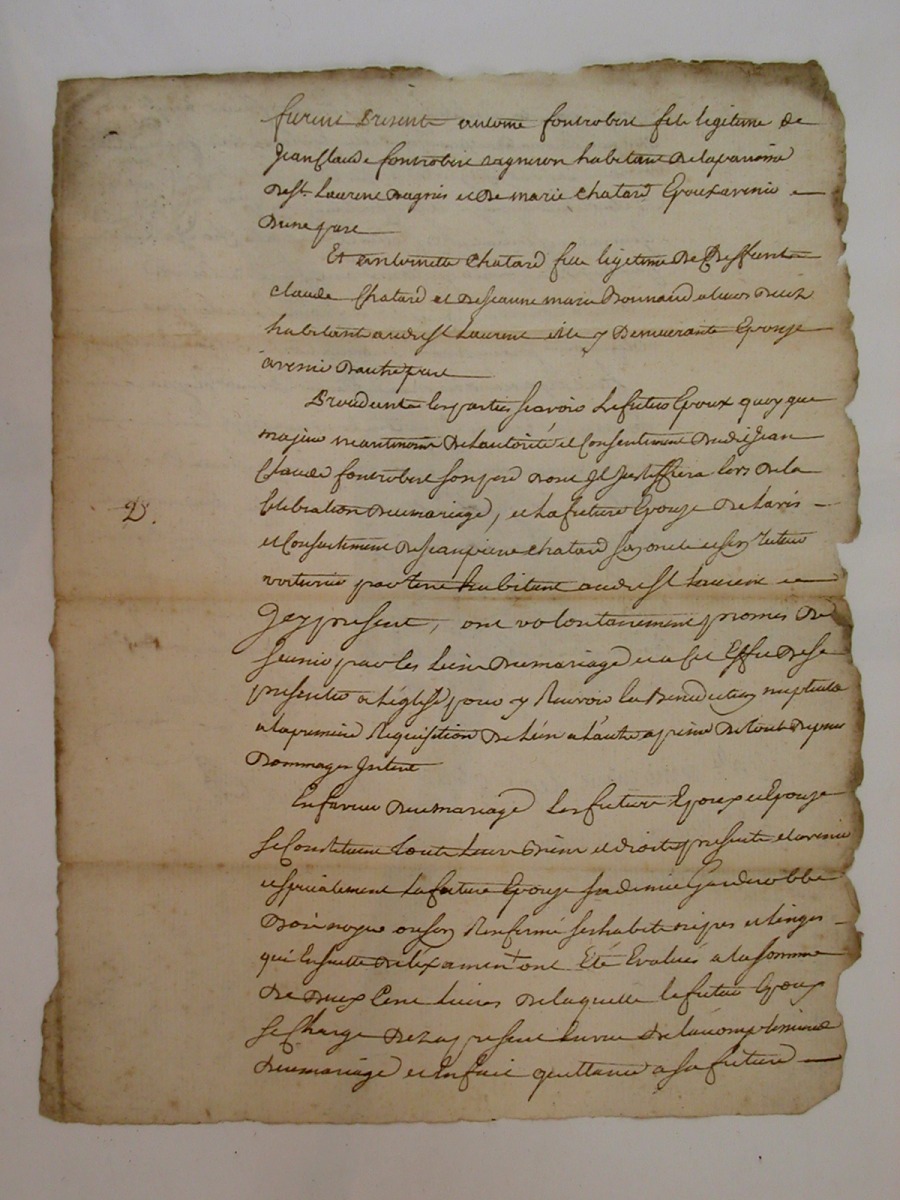 furent Presents antoine fontrobert fils legitime de
Jean Claude fontrobert vigneron habitant de la parroisse
de St. Laurent Dagnis et de marie chatard Epoux avenir
D'une part
Et antoinette chatard fille legitime de Deffunt
claude Chatard et de Jeanne marie Bonnard
habitant audit St Laurent elle y Demeurante Epouse
avenir D'autre part
Procedants les parties scavoir le futur Epoux quoy que
majeur neantmoins De l'autorité et Consentement Dudit Jean
Claude fontrobert son pere dont Il Justiffiera lors de la
Celebration Du mariage, et La future Epouse De l'avis
et Consentement De Jean pierre chatard son oncle et son tuteur
D.
voiturier par terre habitant audit St Laurent
Icy present, ont volontairement promis De
s'unir par les liens Du mariage et a cet Effet De se
presenter a l'église pour y Recevoir la Benediction nuptiale
a la premiere Requisition De l'un a l'autre a peine De tous Depens
Dommages Interets
En faveur Du mariage Les futurs Epoux et Epouse
se Constituent Touts Leurs Biens et droits presents et avenir
et specialement La future Epouse Garderobbe
Bois noyer Renfermé ses habits nipes et linges
qui Ensuitte De l'éxamen ont Été Evalués a la somme
De Deux Cent Livres De laquelle le futur Epoux
se Charge De La presente En vue De l'accomplissement
Du mariage et En fait quittance a sa future